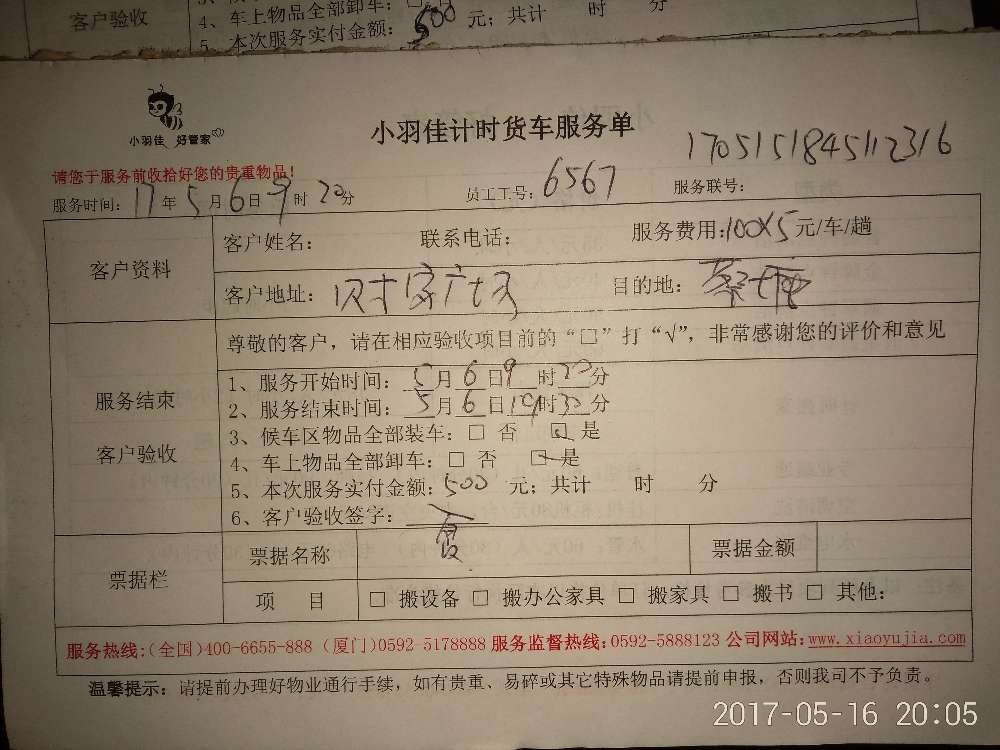 客户验收
4、车上物品全部卸车:
5、本次服务实付金额: 500 元; 共计 时 分
小羽佳 好管家
小羽佳计时货车服务单
1705151845112316
请您于服务前收拾好您的贵重物品!
服务时间: 17 年 5 月 6 日 9 时 20 分 员工工号: 6567 服务联号:
客户资料
客户姓名: 联系电话: 服务费用: 100X5 元/车/趟
客户地址: 目的地: 蔡塘
服务结束
客户验收
尊敬的客户，请在相应验收项目前的“□”打“√”，非常感谢您的评价和意见
1、服务开始时间: 5 月 6 日 9 时 20 分
2、服务结束时间: 5 月 6 日 19 时 30 分
3、候车区物品全部装车: □ 否 □ 是
4、车上物品全部卸车: □ 否 □ 是
5、本次服务实付金额: 500 元; 共计 时 分
6、客户验收签字:
票据栏
票据名称 票据金额
项 目 □ 搬设备 □ 搬办公家具 □ 搬家具 □ 搬书 □ 其他:
服务热线:(全国)400-6655-888 (厦门)0592-5178888 服务监督热线:0592-5888123 公司网站:www.xiaoyujia.com
温馨提示: 请提前办理好物业通行手续，如有贵重、易碎或其它特殊物品请提前申报，否则我司不予负责。
2017-05-16 20:05